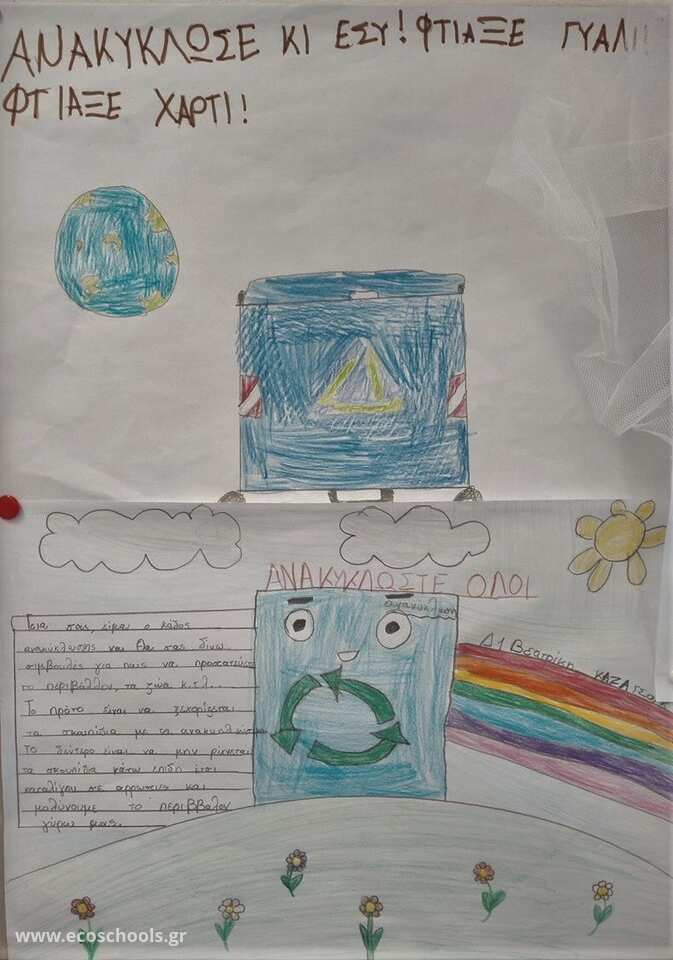 ΑΝΑΚΥΚΛΩΣΕ ΚΙ ΕΣΥ! ΦΤΙΑΞΕ ΓΥΑΛΙ!!
ΦΤΙΑΞΕ ΧΑΡΤΙ!
ΑΝΑΚΥΚΛΩΣΤΕ ΟΛΟΙ
ανακύκλωση
Γεια σας, είμαι ο κάδος
ανακύκλωσης και θα σας δίνω
συμβουλές για πως να προστατεύετε
το περιβάλλον, τα ζώα κ.τ.λ..
Το πρώτο είναι να ξεχορίζεται
τα σκουπίδια με τα ανακυκλώσιμα
Το δεύτερο είναι να μην ρίχνεται
τα σκουπίδια κάτω επιδη έτσι
καταλίγου σε αρρώστιες και
μολύνουμε το περιββάλον
γύρω μας.
Δ1 Βεατρίκη
www.ecoschools.gr